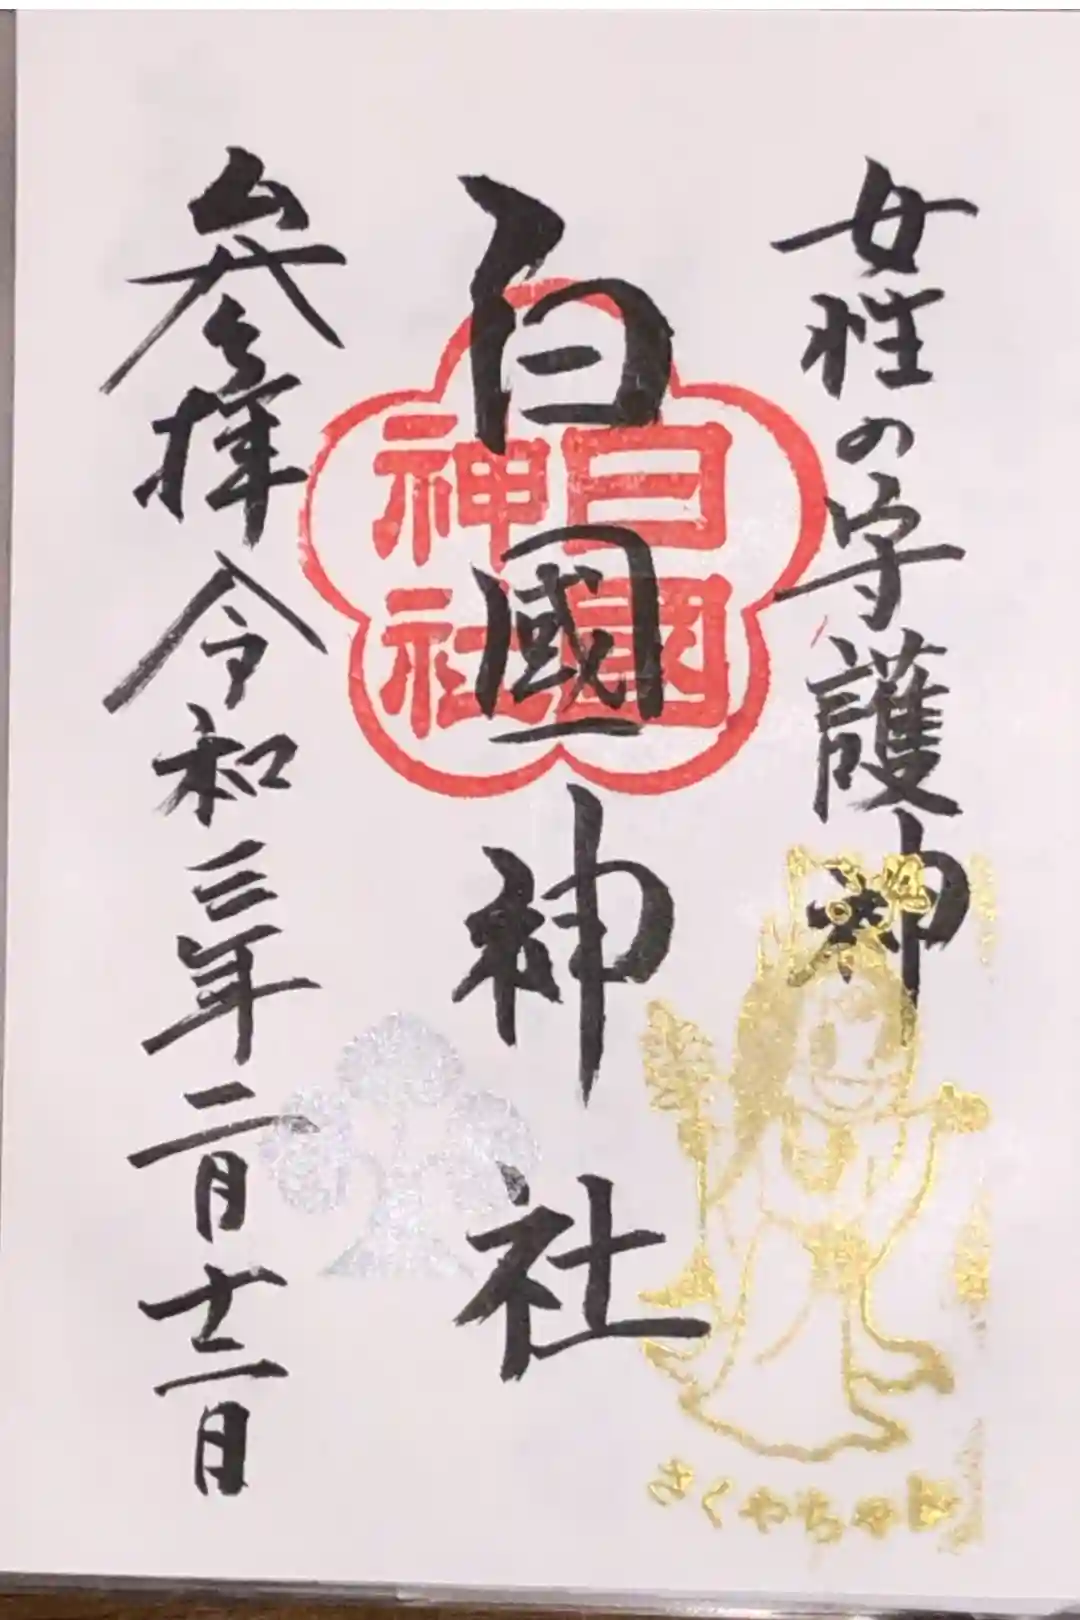 女性の守護神
白國神社
白國
神社
參拝令和三年二月十二日
さくやちゃん